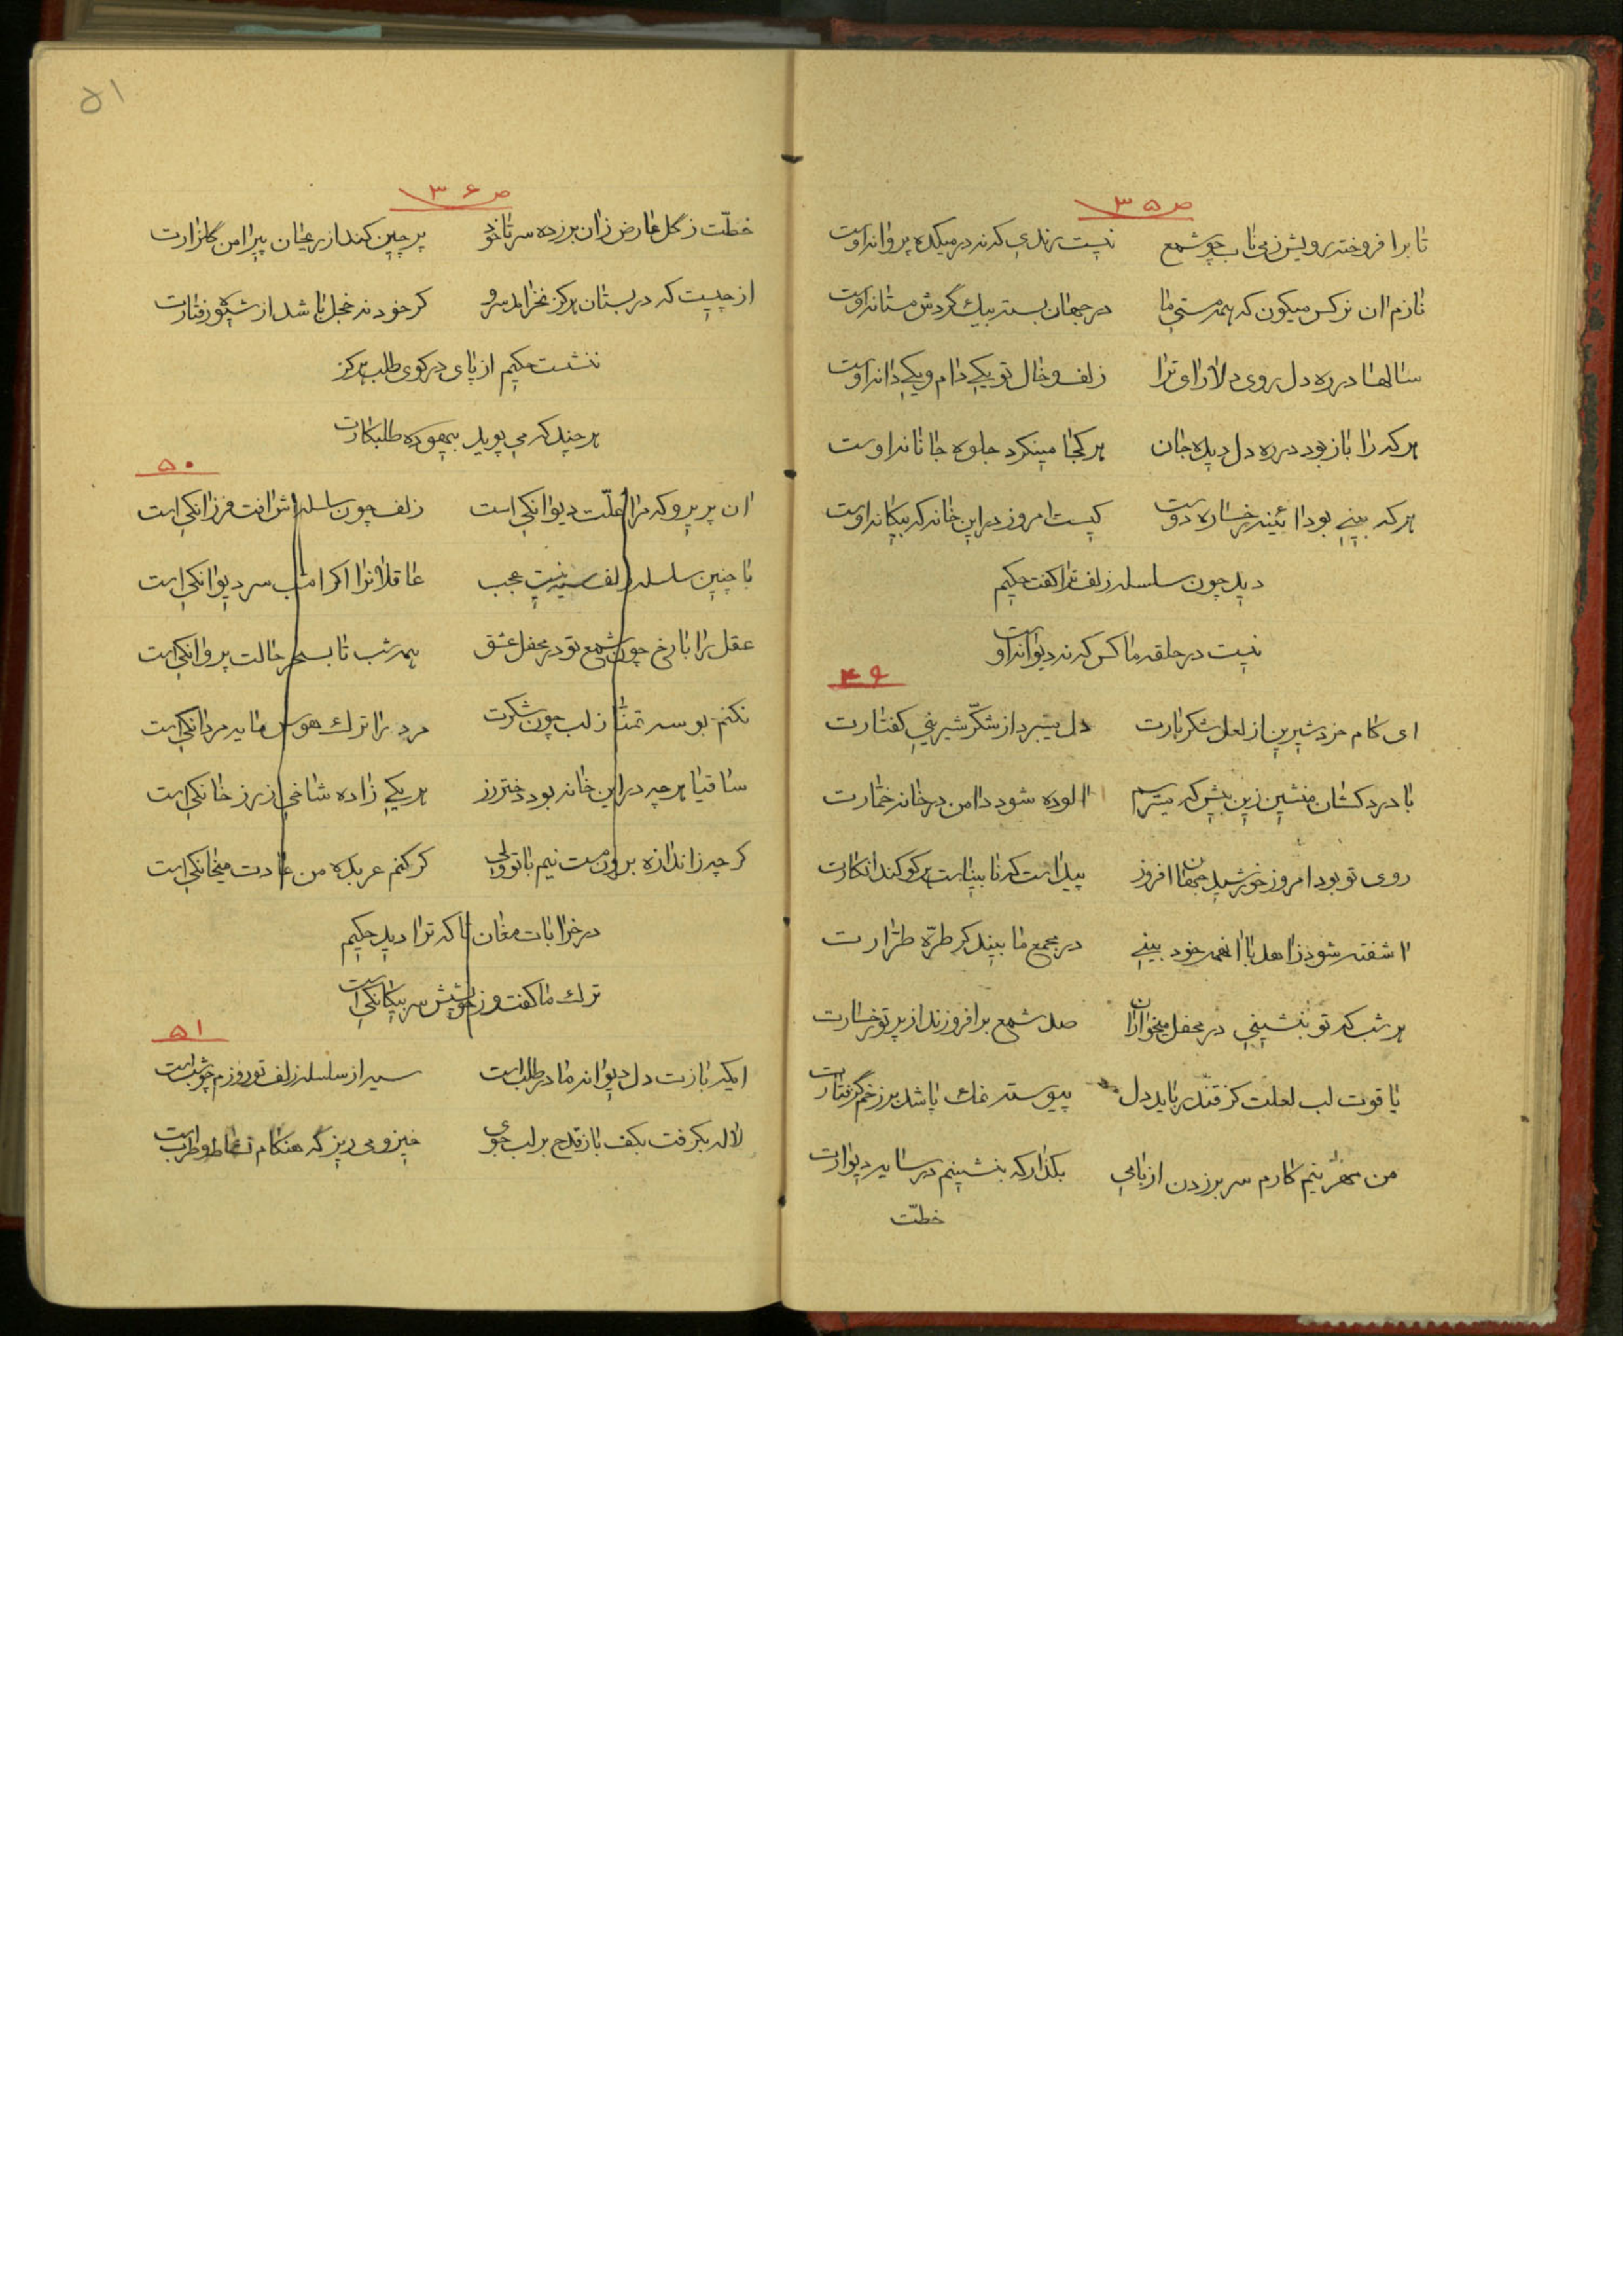 ص ۳۵
تا برافروخته رویش ز می ناب چو شمع نیست رندی که نه در میکده پروانه اوست
نازم ان نرکس میکون که همه مستی ما در جهان بسته بیک گردش مستانه اوست
سالها در ره دل روی دلارای ترا زلف و خال تو یکی دام و یکی دانه اوست
هر که را باز بود در ره دل دیده جان هر کجا مینکرد جلوه جانانه اوست
هر که بینی بود ائینه رخساره دوست کیست امروز در این خانه که بیکانه اوست
دید چون سلسله زلف ترا کفت حکیم
نیست در حلقه ما کس که نه دیوانه اوست
۴۹
ای کام خرد شیرین از لعل شکربارت دل میبرد از شکّر شیرینی کفتارت
با دردکشان منشین زین بیش که میترسم الوده شود دامن در خانه خمّارت
روی تو بود امروز خورشید جهان افروز پیداست که نابیناست هر کو کند انکارت
اشفته شود زاهد با انهمه خود بینی در مجمع ما بیند کر طرّه طرّارت
هر شب که تو بنشینی در محفل میخواران صد شمع برافروزند از پرتو رخسارت
یاقوت لب لعلت کز قند رباید دل پیوسته نمک پاشد بر زخم گرفتارت
من مهر نیم کارم سر برزدن از بامی بکذار که بنشینم در سایه دیوارت
خطّت
۵۱
ص ۳۶
خطّت ز گل عارض زان برزده سر تا خود پرچین کند از ریحان پیرامن گلزارت
از چیست که در بستان هرکز نخرامد سرو کر خود نه خجل باشد از شیوه رفتارت
ننشست حکیم از پای در کوی طلب هرکز
هر چند که می پوید بیهوده طلبکارت
۵۰
ان پریرو که مرا علّت دیوانکی است زلف چون سلسله اش افت فرزانکی است
با چنین سلسله زلف سیه نیست عجب عاقلانرا اکر امشب سر دیوانکی است
عقل را با رخ چون شمع تو در محفل عشق همه شب تا بسحر حالت پروانکی است
نکنم بوسه تمنّا ز لب چون شکرت مرد را ترک هوس مایه مردانکی است
ساقیا هر چه در این خانه بود دختر رز هر یکی زاده شاخی ز رز خانکی است
کر چه ز اندازه برون مست نیم با تو ولی کر کنم عربده من عادت میخانکی است
در خرابات مغان تا که ترا دید حکیم
ترک ما کفت و ز خویشش سر بیکانکی است
۵۱
ایکه بازت دل دیوانه ما در طلب است سیر از سلسله زلف تو روزم چو شب است
لاله بکرفت بکف باز قدح بر لب جوی خیز و می ریز که هنکام نشاط و طرب است